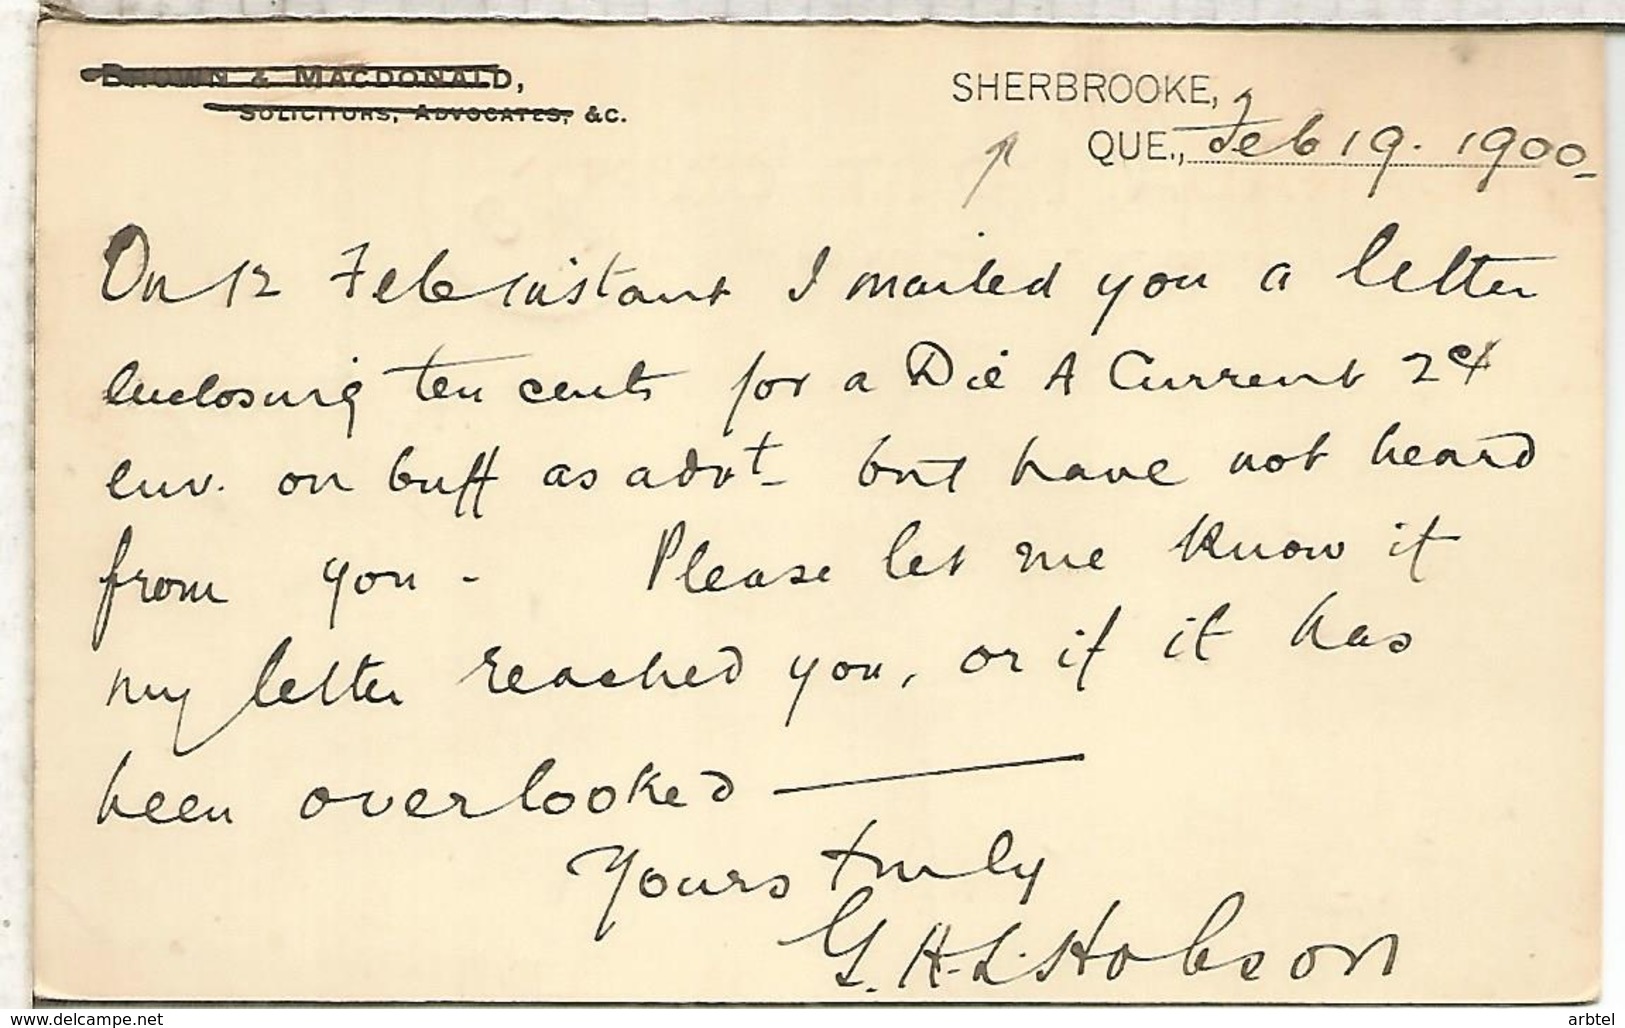 BROWN & MACDONALD,
SOLICITORS, ADVOCATES, &C.
SHERBROOKE,
QUE., Feb 19. 1900
On 12 Feb instant I mailed you a letter
enclosing ten cents for a Die A Current 2ct
env. on buff as advt - but have not heard
from you - Please let me know if
my letter reached you, or if it has
been overlooked —
Yours truly
G. H. L. Hobson
www.delcampe.net
arbtel